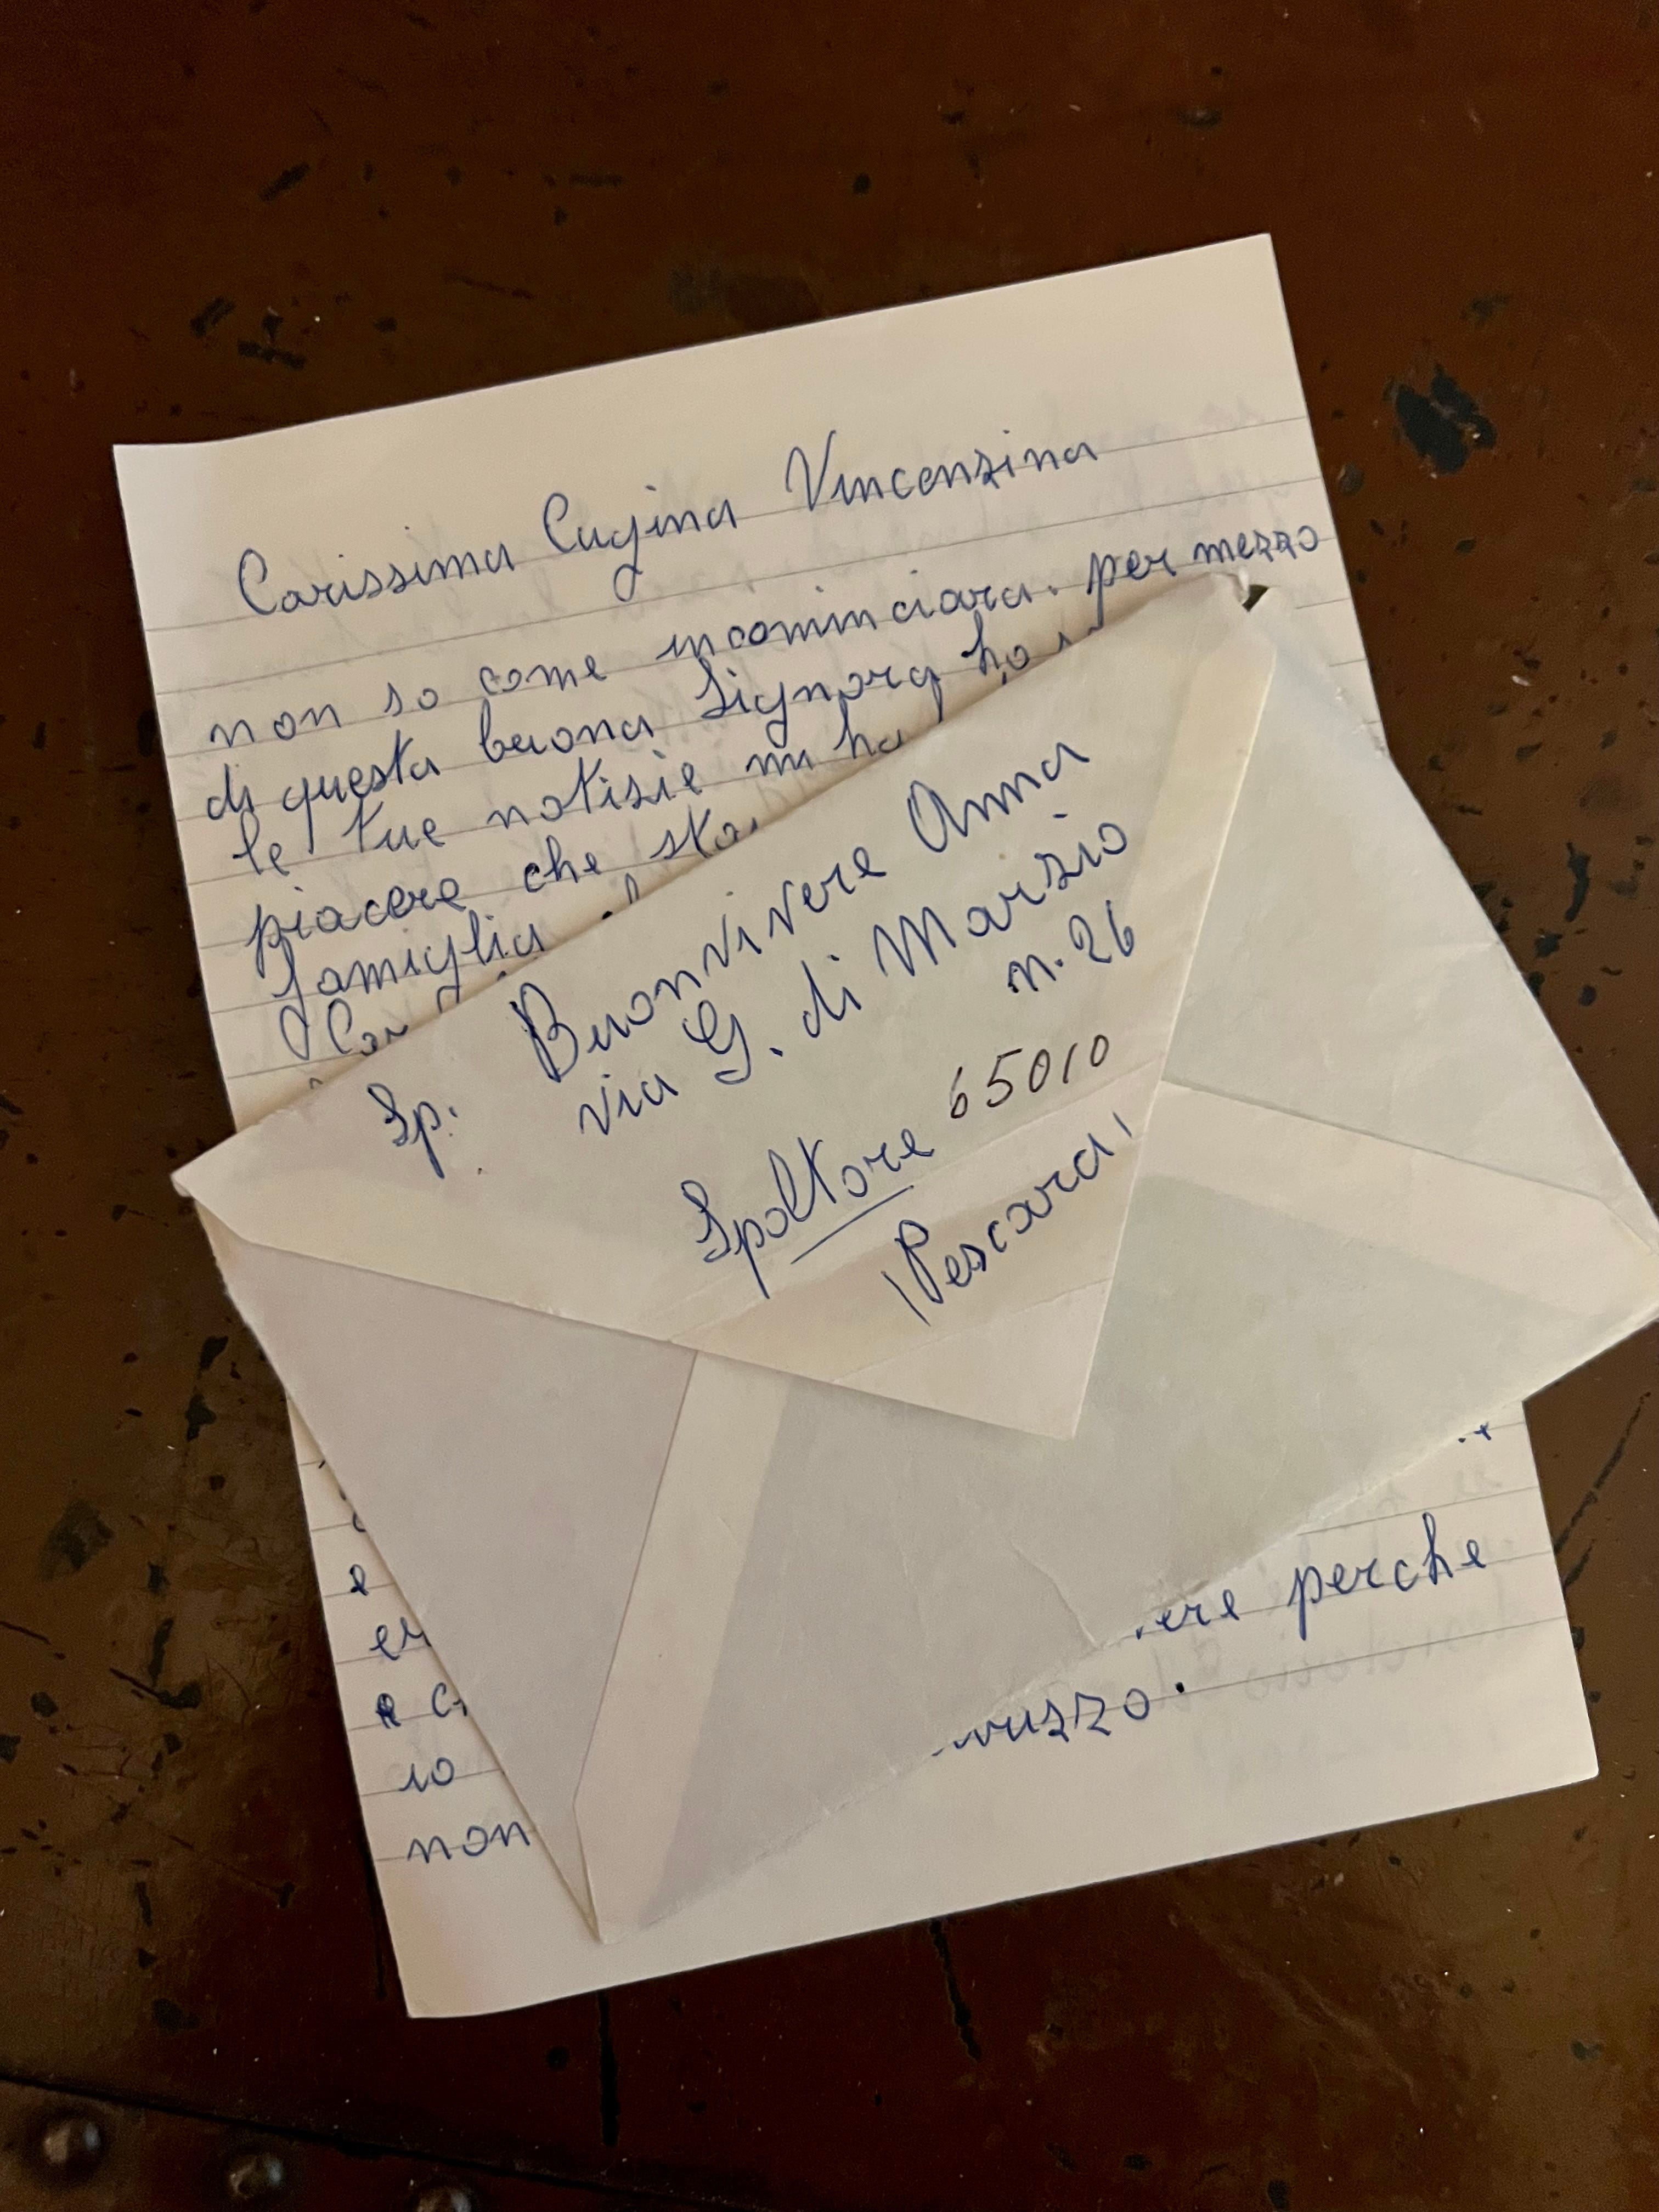 Carissima Cugina Vincenzina
non so come incominciara. per mezzo
di questa buona Signora ho
le tue notizie mi ha
piacere che
famiglia
Sp. Buonvivere Anna
via G. di Marzio
n. 26
Spoltore 65010
(Pescara)
e
perche
io
non